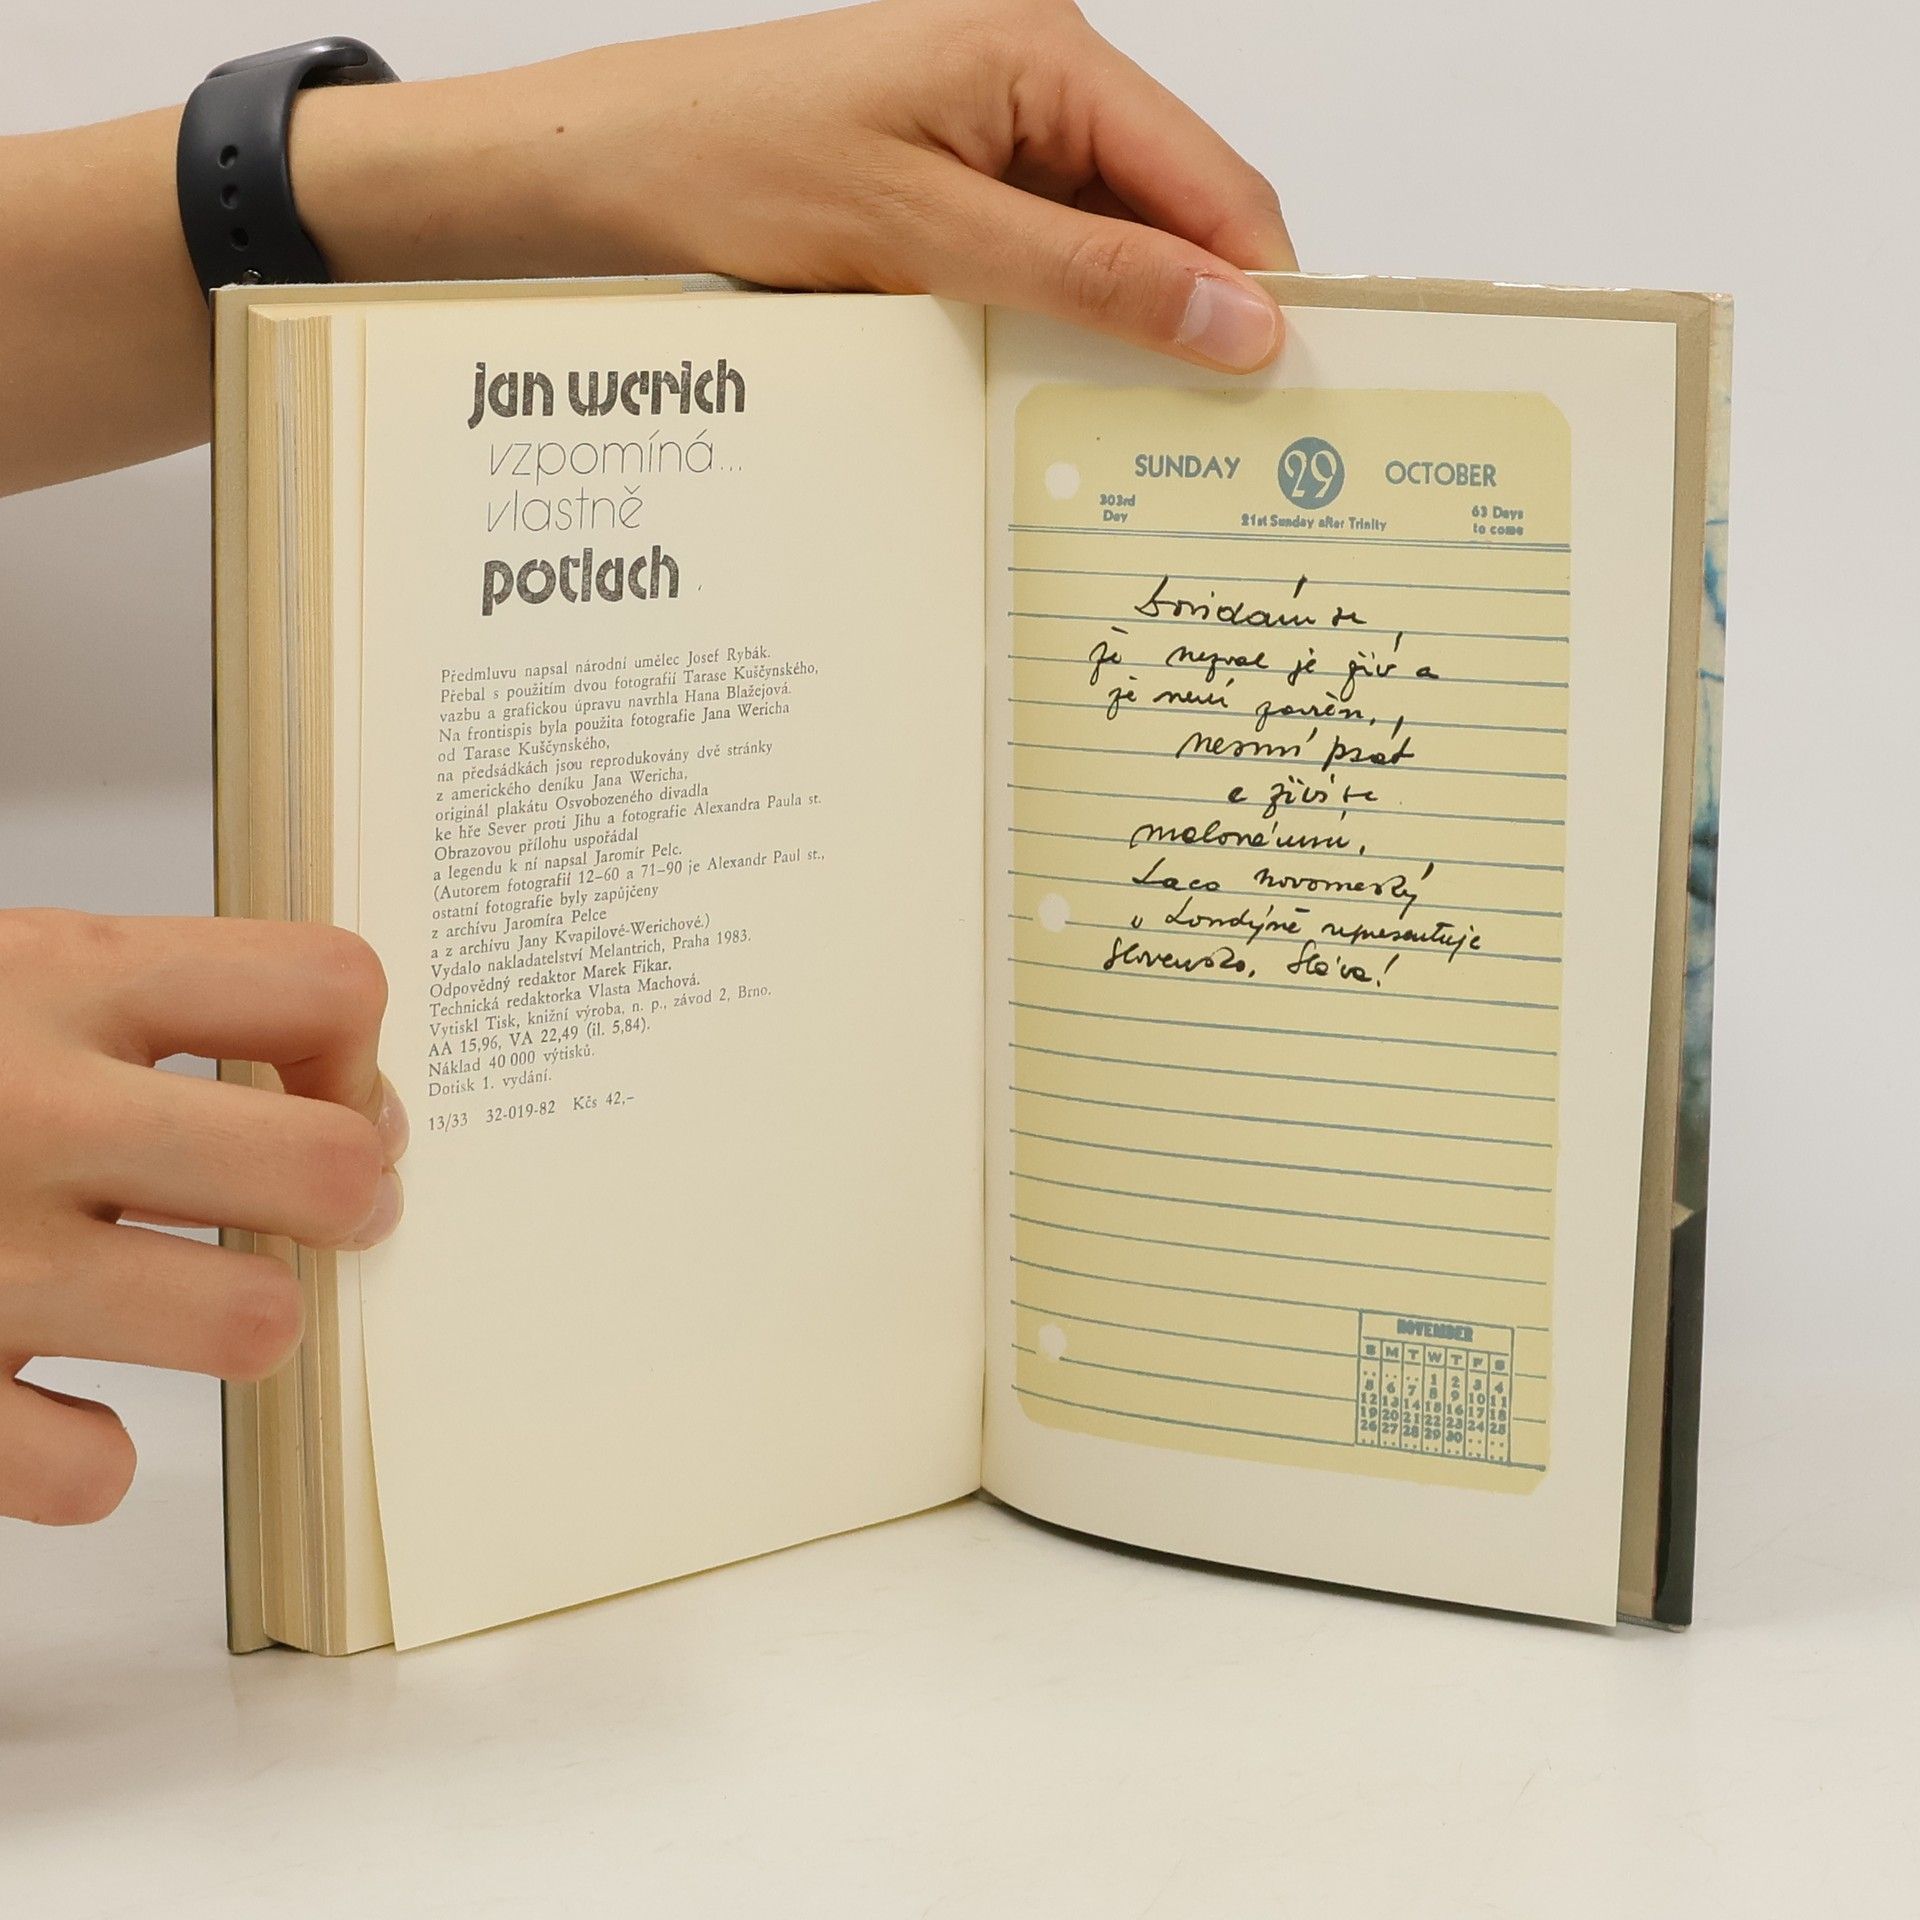 jan werich
vzpomíná...
vlastně
potlach
Předmluvu napsal národní umělec Josef Rybák.
Přebal s použitím dvou fotografií Tarase Kuščynského,
vazbu a grafickou úpravu navrhla Hana Blažejová.
Na frontispis byla použita fotografie Jana Wericha
od Tarase Kuščynského,
na předsádkách jsou reprodukovány dvě stránky
z amerického deníku Jana Wericha,
originál plakátu Osvobozeného divadla
ke hře Sever proti Jihu a fotografie Alexandra Paula st.
Obrazovou přílohu uspořádal
a legendu k ní napsal Jaromír Pelc.
(Autorem fotografií 12–60 a 71–90 je Alexandr Paul st.,
ostatní fotografie byly zapůjčeny
z archívu Jaromíra Pelce
a z archívu Jany Kvapilové-Werichové.)
Vydalo nakladatelství Melantrich, Praha 1983.
Odpovědný redaktor Marek Fikar.
Technická redaktorka Vlasta Machová.
Vytiskl Tisk, knižní výroba, n. p., závod 2, Brno.
AA 15,96, VA 22,49 (il. 5,84).
Náklad 40 000 výtisků.
Dotisk 1. vydání.
13/33 32-019-82 Kčs 42,–
SUNDAY 29 OCTOBER
303rd Day
21st Sunday after Trinity
63 Days to come
Dovídám se,
že nezval je živ a
že není zavřen,
nesmí psát
a živí se
Laco Novomeský
v Londýně representuje
Slovensko, Sláva!
NOVEMBER
S M T W T F S
.. .. .. 1 2 3 4
5 6 7 8 9 10 11
12 13 14 15 16 17 18
19 20 21 22 23 24 25
26 27 28 29 30 .. ..